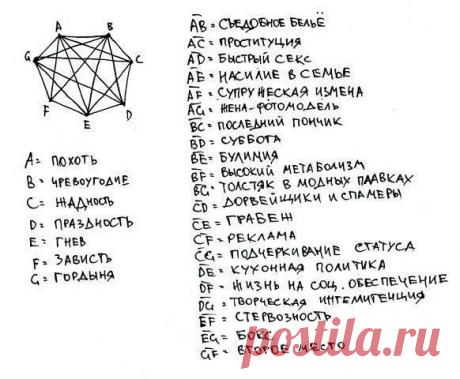 A B
G C
F E D
A = ПОХОТЬ
B = ЧРЕВОУГОДИЕ
C = ЖАДНОСТЬ
D = ПРАЗДНОСТЬ
E = ГНЕВ
F = ЗАВИСТЬ
G = ГОРДЫНЯ
AB = СЪЕДОБНОЕ БЕЛЬЁ
AC = ПРОСТИТУЦИЯ
AD = БЫСТРЫЙ СЕКС
AE = НАСИЛИЕ В СЕМЬЕ
AF = СУПРУЖЕСКАЯ ИЗМЕНА
AG = ЖЕНА-ФОТОМОДЕЛЬ
BC = ПОСЛЕДНИЙ ПОНЧИК
BD = СУББОТА
BE = БУЛИМИЯ
BF = ВЫСОКИЙ МЕТАБОЛИЗМ
BG = ТОЛСТЯК В МОДНЫХ ПЛАВКАХ
CD = ДОРВЕЙЩИКИ И СПАМЕРЫ
CE = ГРАБЕЖ
CF = РЕКЛАМА
CG = ПОДЧЕРКИВАНИЕ СТАТУСА
DE = КУХОННАЯ ПОЛИТИКА
DF = ЖИЗНЬ НА СОЦ. ОБЕСПЕЧЕНИЕ
DG = ТВОРЧЕСКАЯ ИНТЕЛИГЕНЦИЯ
EF = СТЕРВОЗНОСТЬ
EG = БОКС
GF = ВТОРОЕ МЕСТО
postila.ru